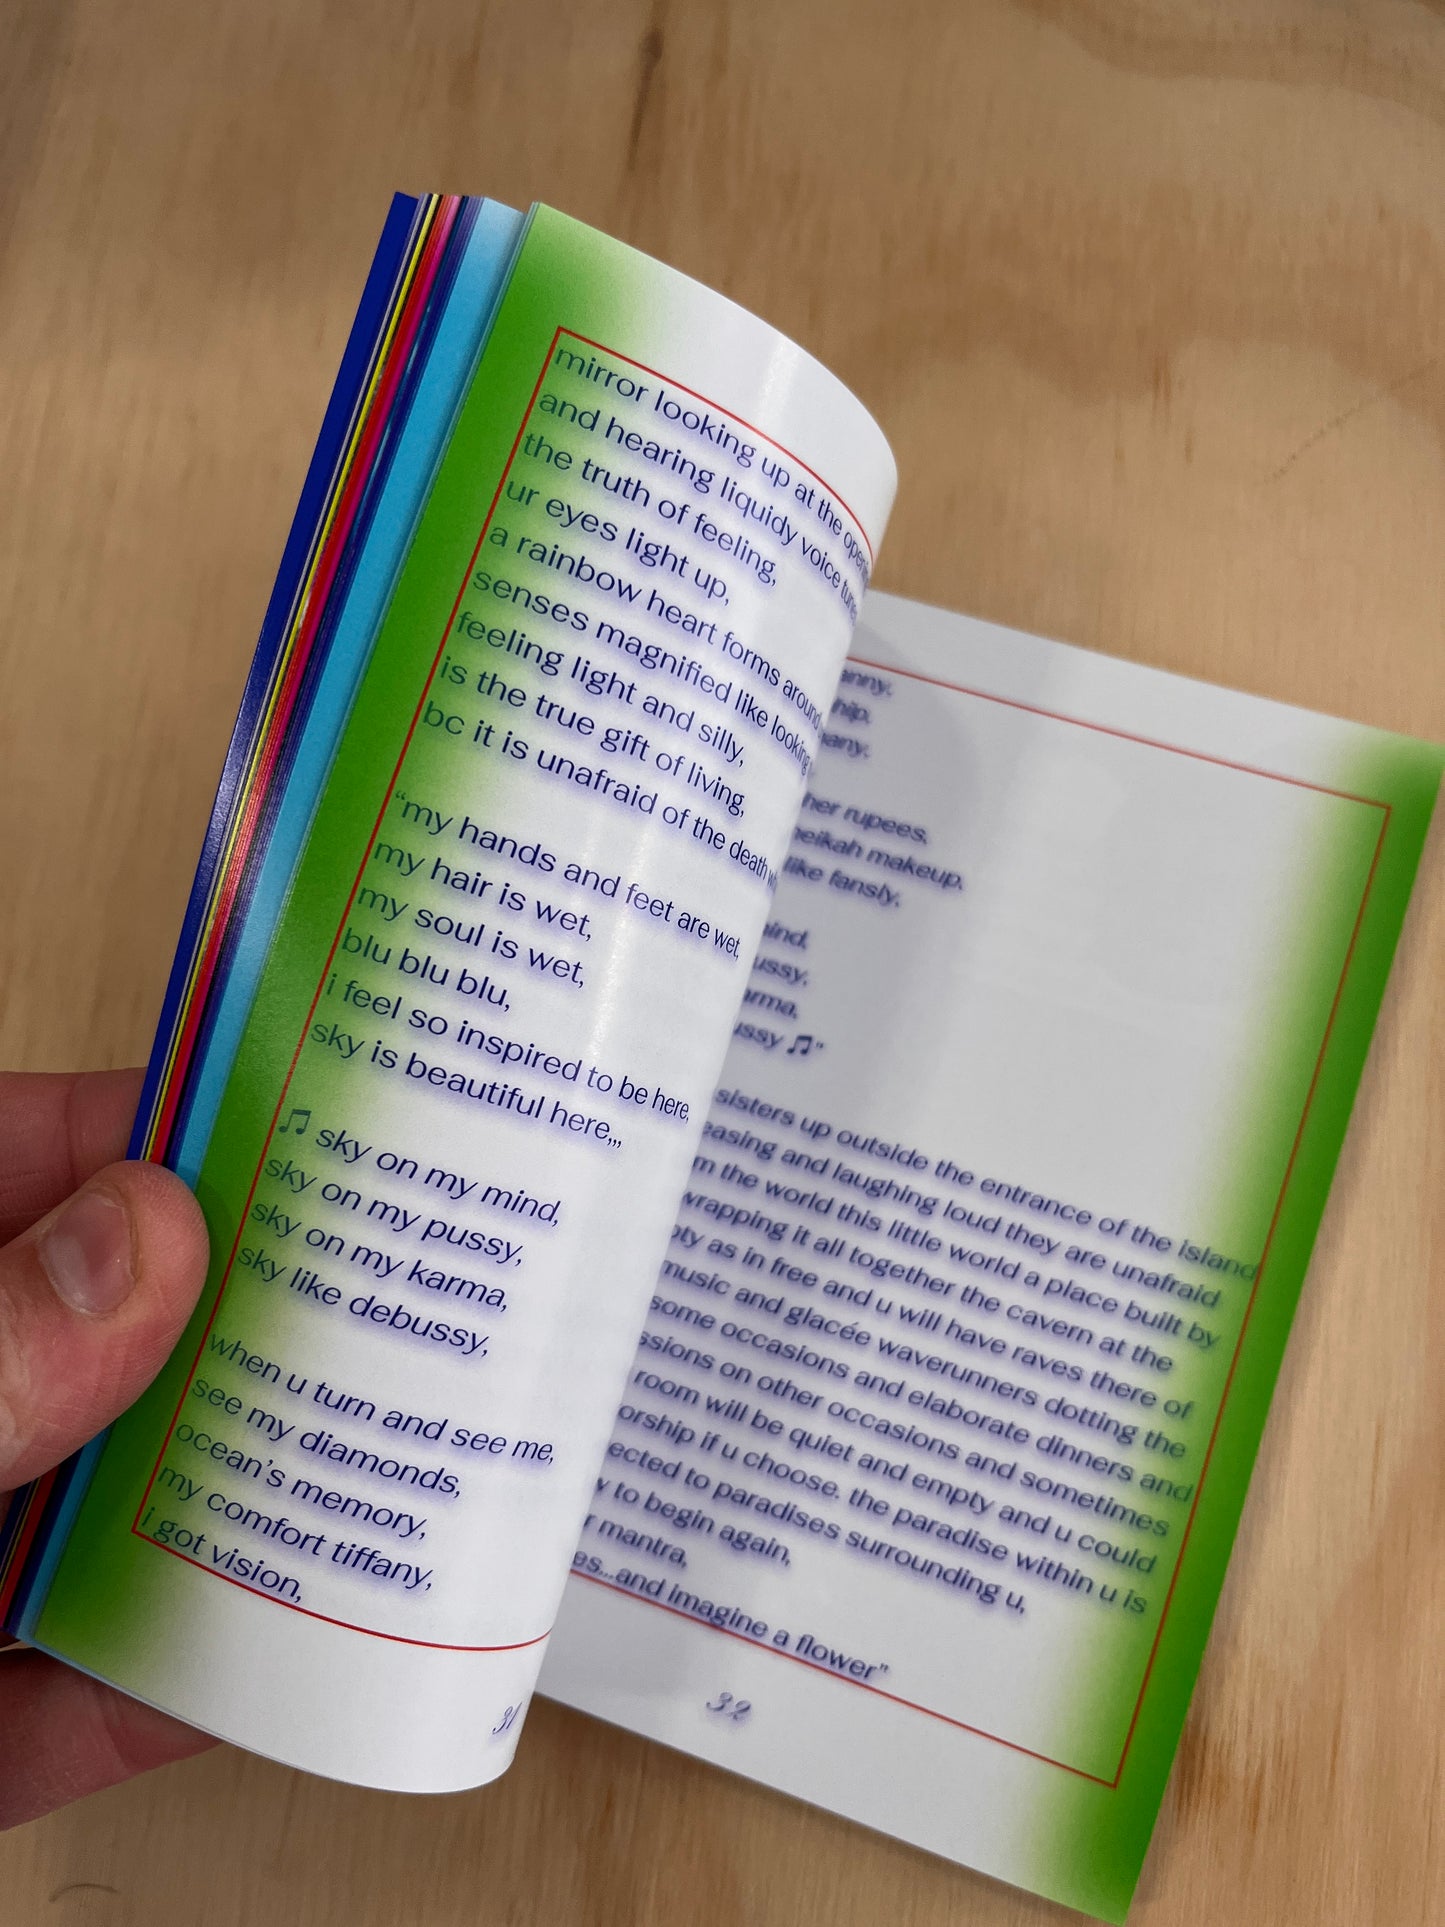 mirror looking up at the
and hearing liquidy voice
the truth of feeling,
ur eyes light up,
a rainbow heart forms around
senses magnified like looking
feeling light and silly,
is the true gift of living,
bc it is unafraid of the death
“my hands and feet are wet,
my hair is wet,
my soul is wet,
blu blu blu,
i feel so inspired to be here,
sky is beautiful here,,,
♫ sky on my mind,
sky on my pussy,
sky on my karma,
sky like debussy,
when u turn and see me,
see my diamonds,
ocean’s memory,
my comfort tiffany,
i got vision,
31
her rupees,
makeup,
like fansly,
♫”
sisters up outside the entrance of the island
and laughing loud they are unafraid
the world this little world a place built by
wrapping it all together the cavern at the
as in free and u will have raves there of
music and glacée waverunners dotting the
some occasions and elaborate dinners and
on other occasions and sometimes
room will be quiet and empty and u could
if u choose. the paradise within u is
to paradises surrounding u,
to begin again,
mantra,
and imagine a flower”
32